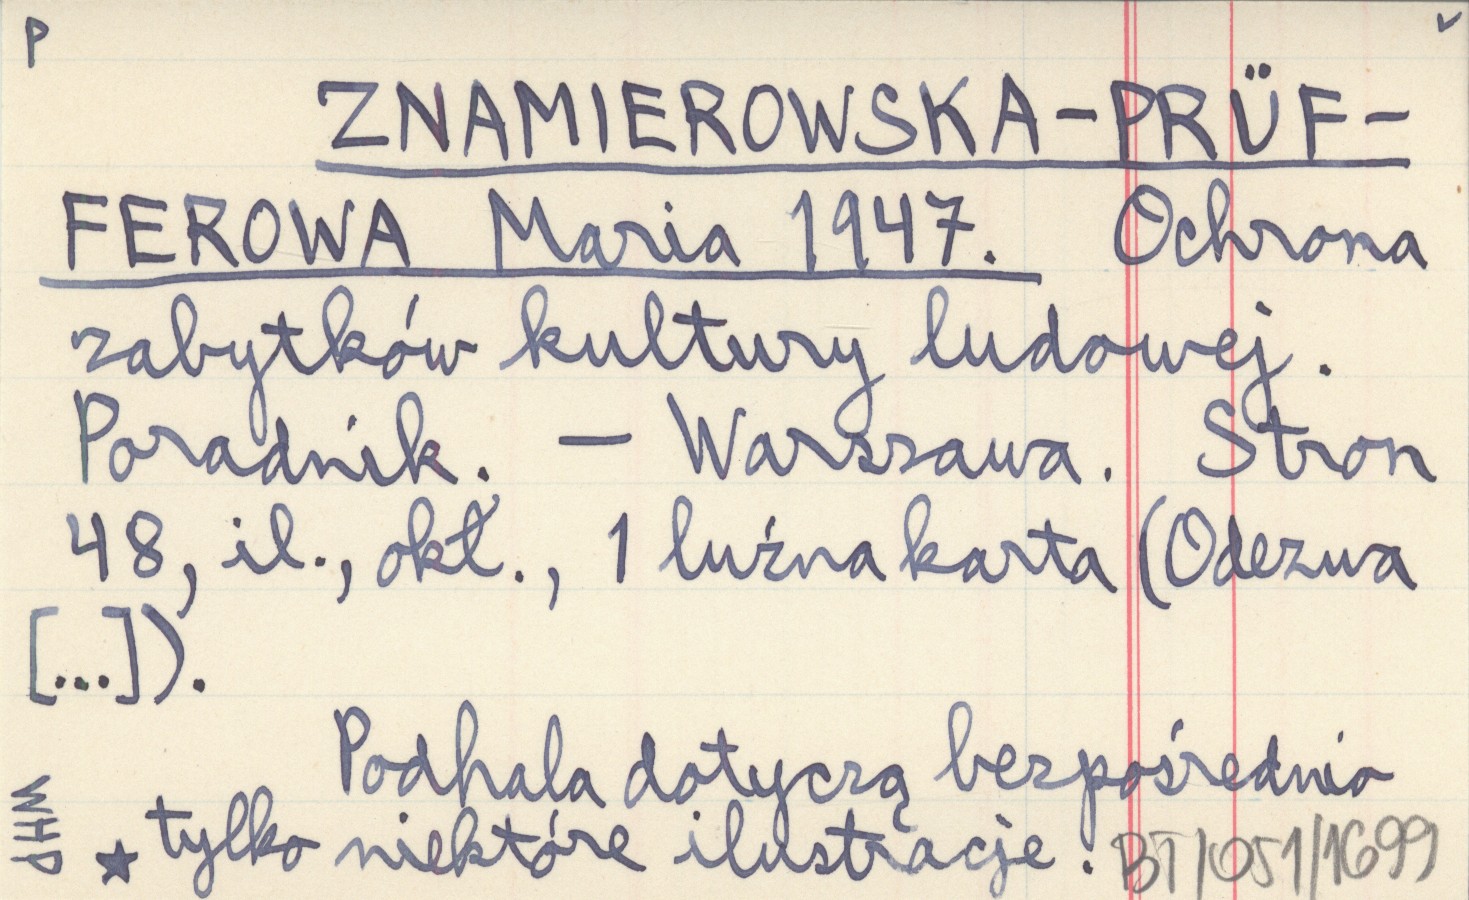 P ✓
ZNAMIEROWSKA-PRÜF-
FEROWA Maria 1947. Ochrona
zabytków kultury ludowej.
Poradnik. — Warszawa. Stron
48, il., okł., 1 luźna karta (Odezwa
[...]).
Podhala dotyczą bezpośrednio
★ tylko niektóre ilustracje.
WHP
BT/051/1699